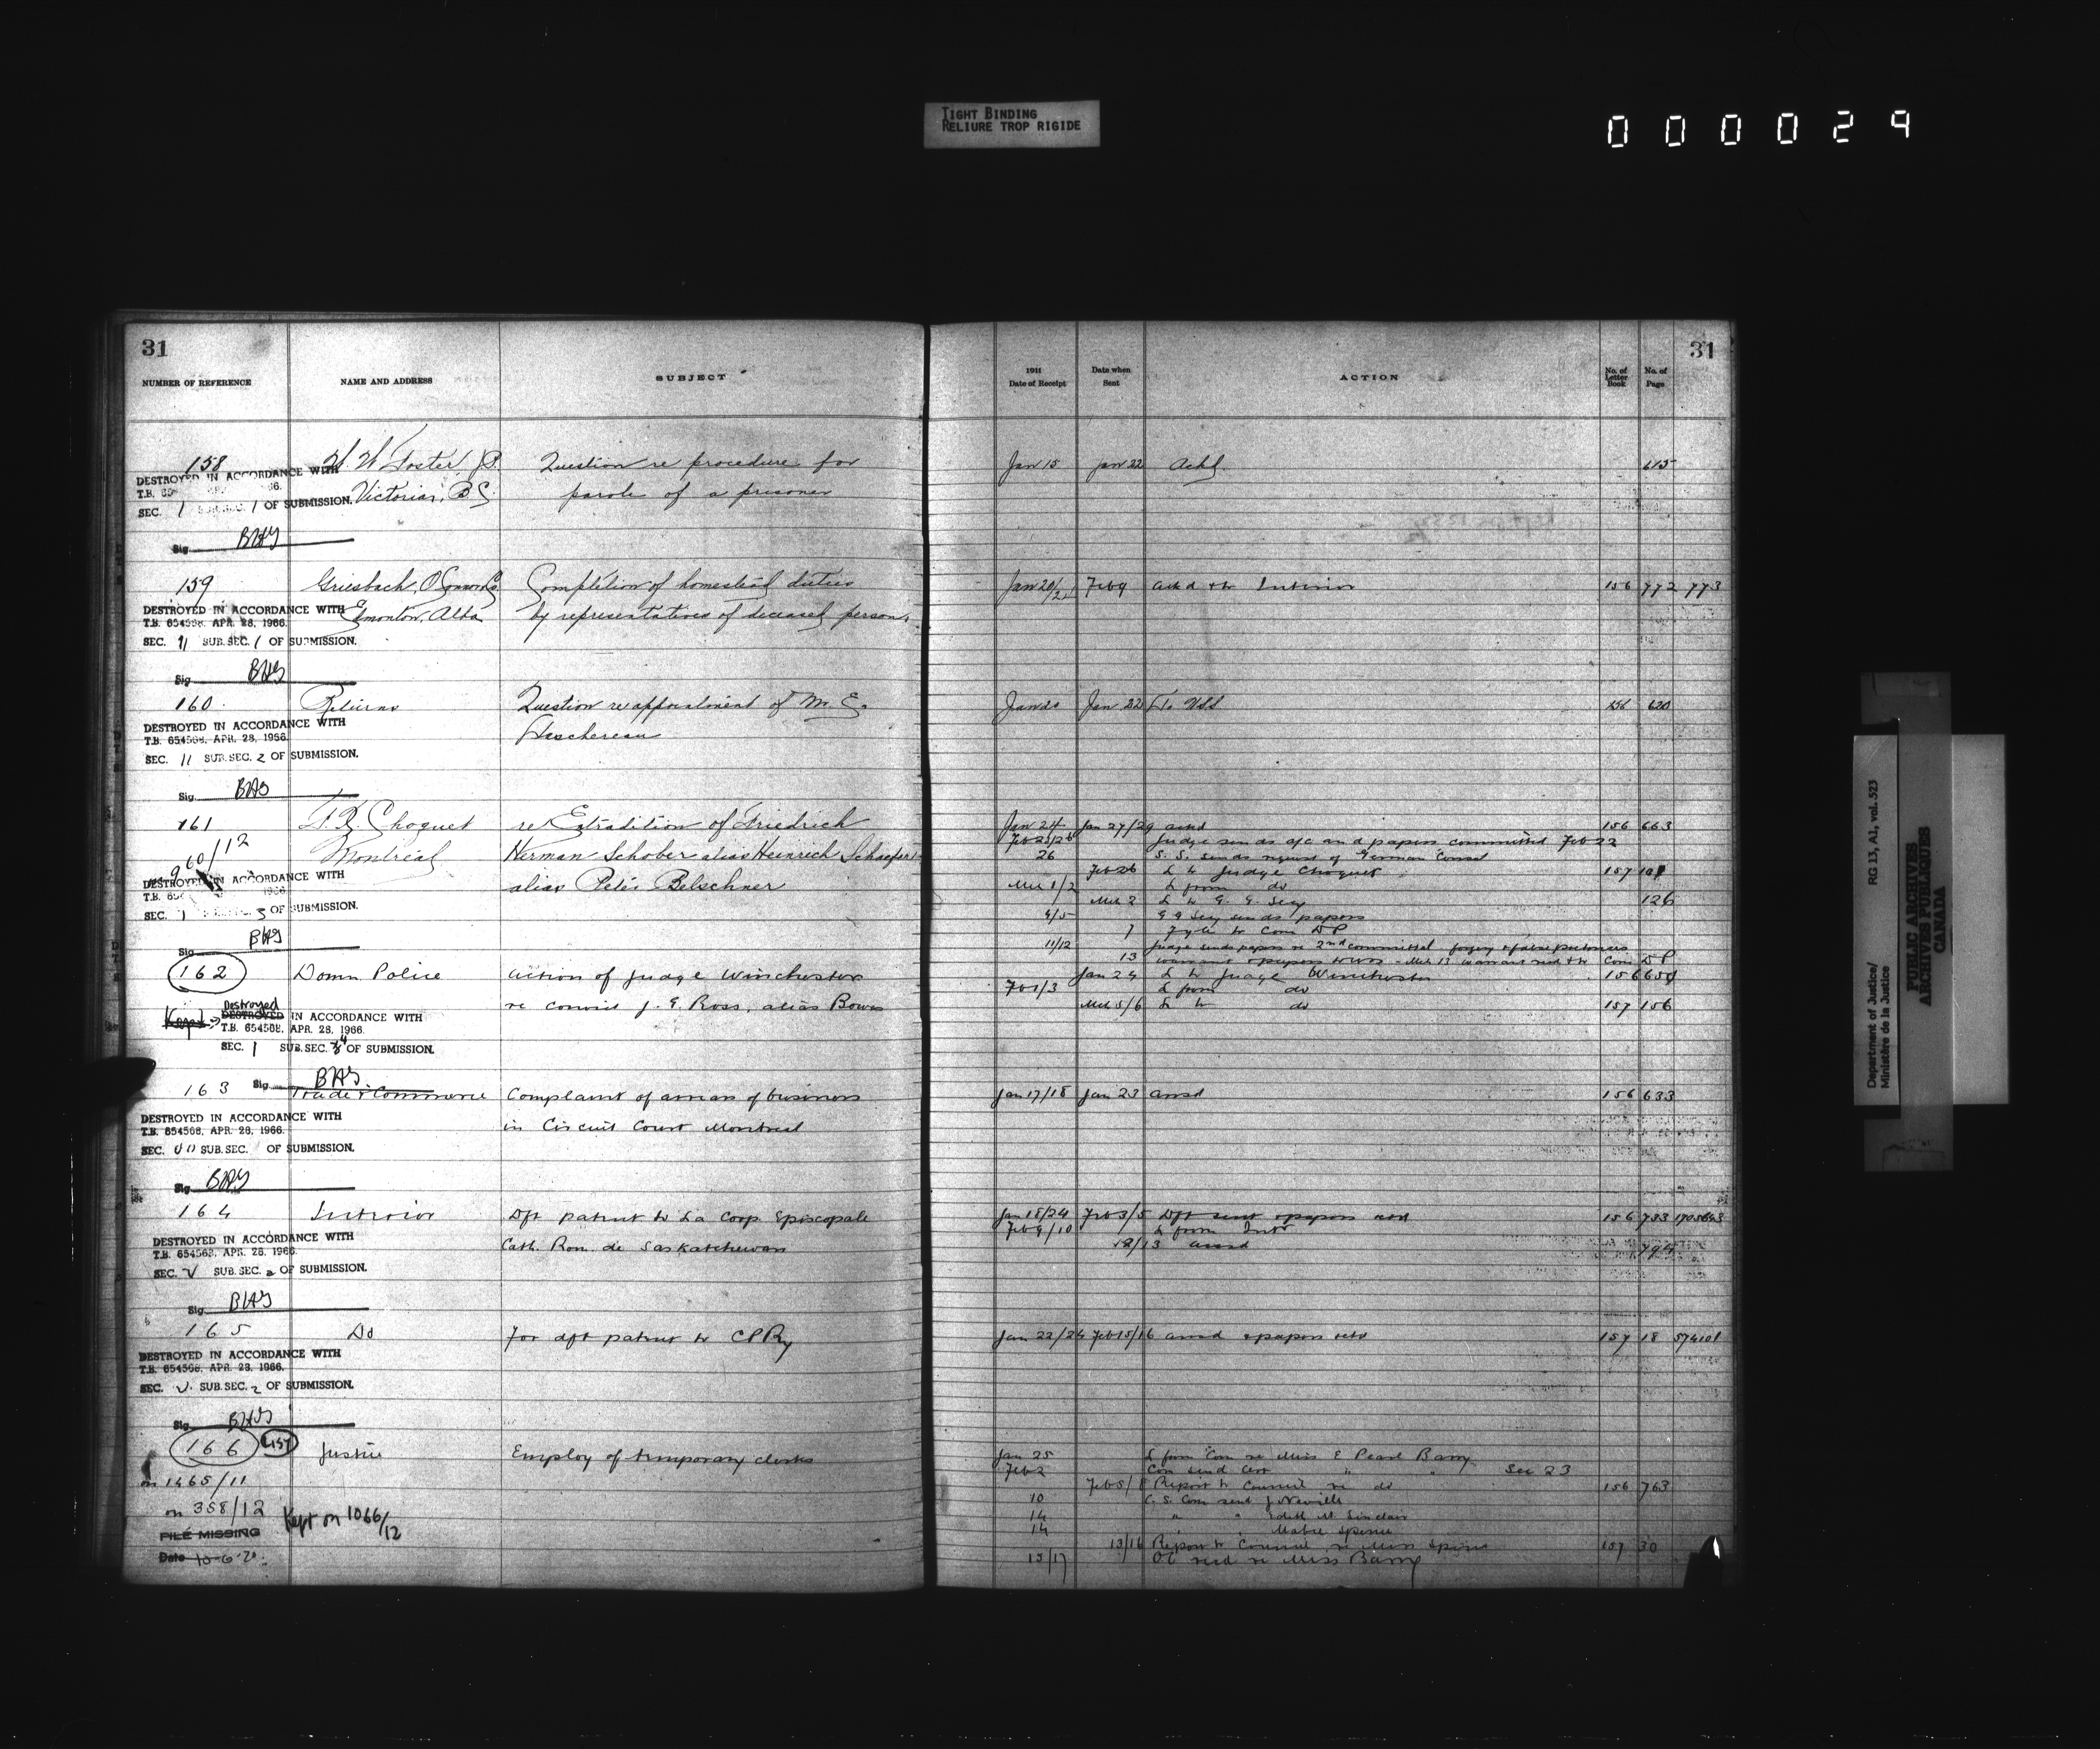 TIGHT BINDING
RELIURE TROP RIGIDE
000029
31
NUMBER OF REFERENCE NAME AND ADDRESS SUBJECT
158 W. W. Foster, J.P. Question re procedure for
DESTROYED IN ACCORDANCE WITH
T.B.
SEC. 1 SUB. SEC. 1 OF SUBMISSION. Victoria, B.C. parole of a prisoner
Sig. BHS
159 Griesbach, O'Connor Co. Completion of homestead duties
DESTROYED IN ACCORDANCE WITH Edmonton, Alba by representatives of deceased persons
T.B. 654568. APR. 28, 1966.
SEC. 11 SUB. SEC. 1 OF SUBMISSION.
Sig. BHS
160 Returns Question re appointment of M. E.
DESTROYED IN ACCORDANCE WITH Taschereau
T.B. 654568, APR. 28, 1966.
SEC. 11 SUB. SEC. 2 OF SUBMISSION.
Sig. BHS
161 F. X. Choquet re Extradition of Friedrich
960/12 Montréal Herman Schober alias Heinrich Schaefer
DESTROYED IN ACCORDANCE WITH alias Peter Belschner
SEC. 1 3 OF SUBMISSION.
Sig. BHS
162 Domn Police Action of Judge Winchester
Kept Destroyed re convict J. E. Ross, alias Bowen
DESTROYED IN ACCORDANCE WITH
T.B. 654568, APR. 28, 1966.
SEC. 1 SUB. SEC. 4 OF SUBMISSION.
Sig. BHS.
163 Trade & Commerce Complaint of arrears of business
DESTROYED IN ACCORDANCE WITH in Circuit Court Montreal
T.B. 654568, APR. 28, 1966.
SEC. SUB. SEC. OF SUBMISSION.
Sig. BHS
164 Interior Dft patent to La Corp. Episcopale
DESTROYED IN ACCORDANCE WITH Cath. Rom. de Saskatchewan
T.B. 654568, APR. 28, 1966.
SEC. V SUB. SEC. 2 OF SUBMISSION.
Sig. BHS
165 Do For dft patent to CPRy
DESTROYED IN ACCORDANCE WITH
T.B. 654568, APR. 28, 1966.
SEC. V SUB. SEC. 2 OF SUBMISSION.
Sig. BHS
166 Justice Employ of temporary clerks
on 1465/11
on 358/12 Kept on 1066/12
FILE MISSING
Date 10-6-70
31
1911 Date of Receipt Date when Sent ACTION No. of Letter Book No. of Page
Jan 15 Jan 22 Ackd. 615
Jan 20/21 Feb 9 Ackd & to Interior 156 772 773
Jan 20 Jan 22 To 156 620
Jan 24 Jan 27/29 ansd 156 663
Feb 23/26 Judge sends a/c and papers committed Feb 22
26 S. S. sends request of German Consul
Feb 26 L to Judge Choquet 157 101
Mch 1/2 L from do
Mch 2 L to G. G. Secy 126
4/5 G G Secy sends papers
7 Fyle to Com D P
11/12 Judge sends papers re 2nd committal forgery & false pretences
13 warrant & papers to - Mch 13 warrant recd & to Com D P
Jan 24 L to Judge Winchester 156 654
Feb 1/3 L from do
Mch 5/6 L to do 157 156
Jan 17/18 Jan 23 ansd 156 633
Jan 18/24 Feb 3/5 Dft sent & papers retd 156 733
Feb 9/10 L from Intr
12/13 ansd 794
Jan 22/24 Feb 15/16 ansd & papers retd 157 18 574101
Jan 25 L from Com re Miss E Pearl Barry
Feb 2 Com send Cert " " Sec 23
Feb 5/8 Report to Council re do 156 763
10 C. S. Com send J Neville
14 " " Edith M Sinclair
14 " " Mabel Spence
13/16 Report to Council re Miss Spence 157 30
15/17 OC recd re Miss Barry
Department of Justice/ RG 13, A1, vol. 523
Ministère de la Justice
PUBLIC ARCHIVES
ARCHIVES PUBLIQUES
CANADA